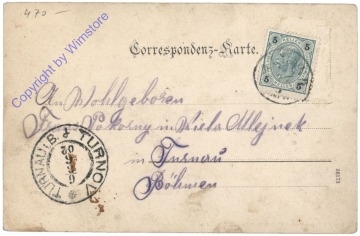 470 —
Copyright by Wimstore
Correspondenz-Karte.
5 5
An Wohlgeboren
Fr. Pokorny in Kiela Mlejnek
in Turnau
Böhmen
TURNAU TURNOV